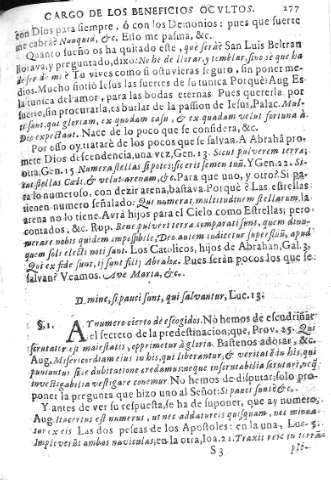 CARGO DE LOS BENEFICIOS OCVLTOS. 277
con Dios para siempre, ó con los Demonios: pues que suerte
me cabrà? Nunquid, &c. Esto me pasma, &c.
Quanto sueño os ha quitado este, què serà? San Luis Beltran
llorava, y preguntado, dixo: No he de llorar, y temblar, sino sè que ha
de ser de mi? Tu vives como si estuvieras seguro, sin poner me-
dios. Mucho sintiò Iesus las suertes de su tunica Porquè? Aug Es
la tunica del amor, para las bodas eternas Pues quererla por
suerte, sin procurarla, es burlar de la passion de Iesus, Palac. Mul-
ti sunt, qui gloriam, ex quodam casu, & ex quadam velut fortuna à
Deo expectant. Nace de lo poco que se considera, &c.
Por esso oy, tratarè de los pocos que se salvan. A Abrahã pro-
mete Dios descendencia, una vez, Gen. 13. Sicut pulverem terræ;
otra, Gen. 15 Numera stellas si potes: sic erit semen tuũ. Y Gen. 22. Si-
cut stellas Cœli, & velut arenam, &c. Para que uno, y otro? Si pa-
ra lo numeroso, con dezir arena, bastava. Porquè? Las estrellas
tienen número señalado: Qui numerat multitudinem stellarum, la
arena no lo tiene. Avrà hijos para el Cielo como Estrellas; pero
contados, &c. Rup. Bene pulveri terræ comparati sunt, quem dinu-
merare nobis quidem impossibile, Deo autem superfluũ, apud
quem soli electi noti sunt. Los Catolicos, hijos de Abrahan, Gal. 3.
Qui ex fide sunt, ij sunt filij Abrahæ. Pues seràn pocos los que se
salvan? Veamos. Ave Maria, &c.
D. mine, si pauci sunt, qui salvantur, Luc. 13.
§. 1. AY numero cierto dè escogidos. No hèmos de escudriñar
el secreto de la predestinacion; que, Prov. 25. Qui
scrutator est maiestatis, opprimetur à gloria. Bastenos adorar, &c.
Aug. Misericordiam eius in his, qui liberantur, & veritatẽ in his, qui
puniuntur sine dubitatione credamus: neque inscrutabilia scrutari, neq;
investigabilia vestigare conemur No hemos de disputar; solo pro-
poner la pregunta que hizo uno al Señor: Si pauci sunt? &c.
Y antes de ver su respuesta, se ha de suponer, que ay numero,
Aug Itacertus est numerus, ut nec addatur eis quisquam, nec minua-
tur ex eis Las dos pescas de los Apostoles: en la una, Luc. 5.
Impleverũt ambas naviculas; en la otra, Ioa. 21. Traxit rete in terrã
S 3 ple-